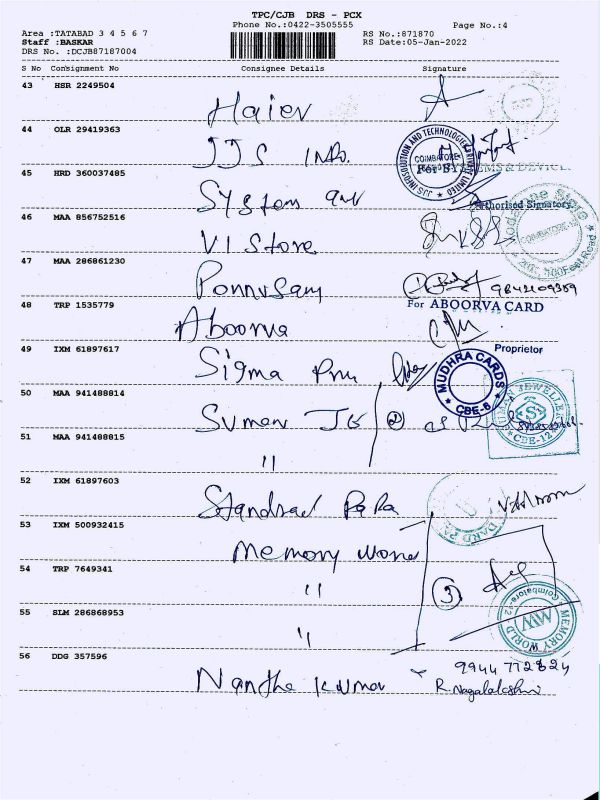 TPC/CJB DRS - PCX
Phone No.:0422-3505555 Page No.:4
Area :TATABAD 3 4 5 6 7 RS No.:871870
Staff :BASKAR RS Date:05-Jan-2022
DRS No. :DCJB87187004
S No Consignment No Consignee Details Signature
43 HSR 2249504
Haier
44 OLR 29419363
JJS Info.
JJS INFOSOLUTION AND TECHNOLOGIES PRIVATE LIMITED
COIMBATORE
45 HRD 360037485
For SYSTEMS & DEVICE
System
Authorised Signatory
46 MAA 856752516
VI Store
COIMBATORE-12
100 Feet Road
47 MAA 286861230
Ponnusamy
48 TRP 1535779
For ABOORVA CARD
Aboorva
Proprietor
49 IXM 61897617
Sigma
MUDHRA CARDS
CBE-6
50 MAA 941488814
Suman
2
CBE-12
51 MAA 941488815
"
52 IXM 61897603
53 IXM 500932415
Memory
54 TRP 7649341
"
3
55 SLM 286868953
"
MEMORY WORLD
Coimbatore-12
MW
56 DDG 357596
9944 772824
Nantha Kumar R. Nagalakshmi